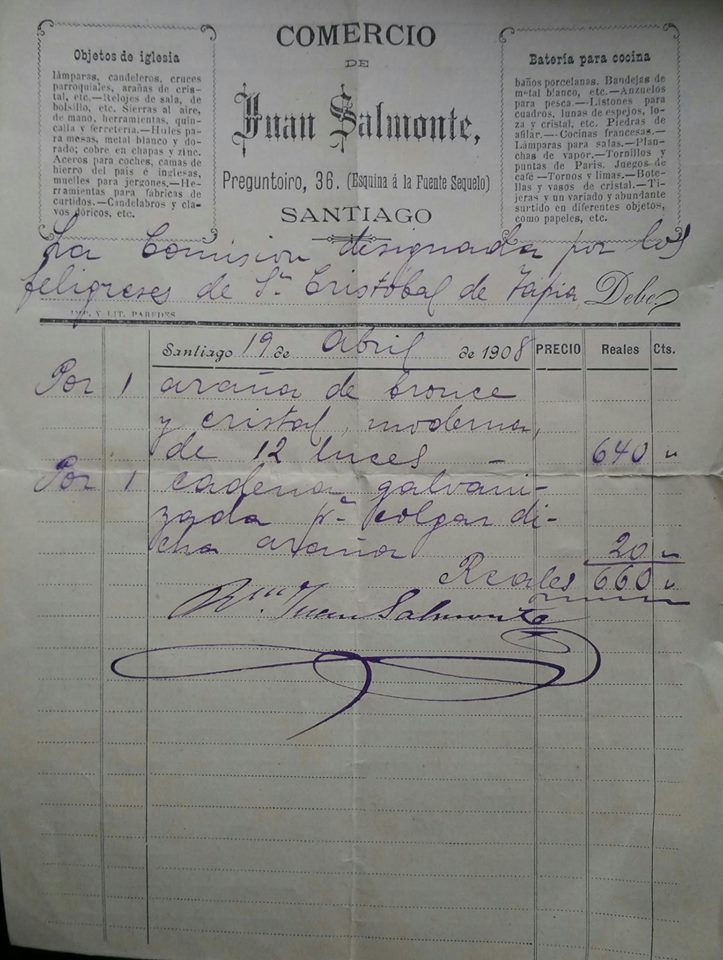 COMERCIO
DE
Juan Salmonte,
Preguntoiro, 36. (Esquina á la Fuente Sequelo)
SANTIAGO
Objetos de iglesia
lámparas, candeleros, cruces
parroquiales, arañas de cris-
tal, etc.—Relojes de sala, de
bolsillo, etc. Sierras al aire,
de mano, herramientas, quin-
calla y ferretería.—Hules pa-
ra mesas, metal blanco y do-
rado; cobre en chapas y zinc.
Aceros para coches, camas de
hierro del país é inglesas,
muelles para jergones.—He-
rramientas para fábricas de
curtidos.—Candelabros y cla-
vos dóricos, etc.
Batería para cocina
baños porcelanas. Bandejas de
metal blanco, etc.—Anzuelos
para pesca.—Listones para
cuadros, lunas de espejos, lo-
za y cristal, etc. Piedras de
afilar.—Cocinas francesas.—
Lámparas para salas.—Plan-
chas de vapor.—Tornillos y
puntas de París. Juegos de
café—Tornos y limas.—Bote-
llas y vasos de cristal.—Ti-
jeras y un variado y abundante
surtido en diferentes objetos,
como papeles, etc.
La Comision designada por los
feligreses de Sn. Cristóbal de Tapia, Debe
IMP. Y LIT. PAREDES
Santiago 19 de Abril de 1908 PRECIO Reales Cts.
Por 1 araña de bronce
y cristal, moderna,
de 12 luces — 640 "
Por 1 cadena galvani-
zada pa. colgar di-
cha araña 20 "
Reales 660 "
Juan Salmonte